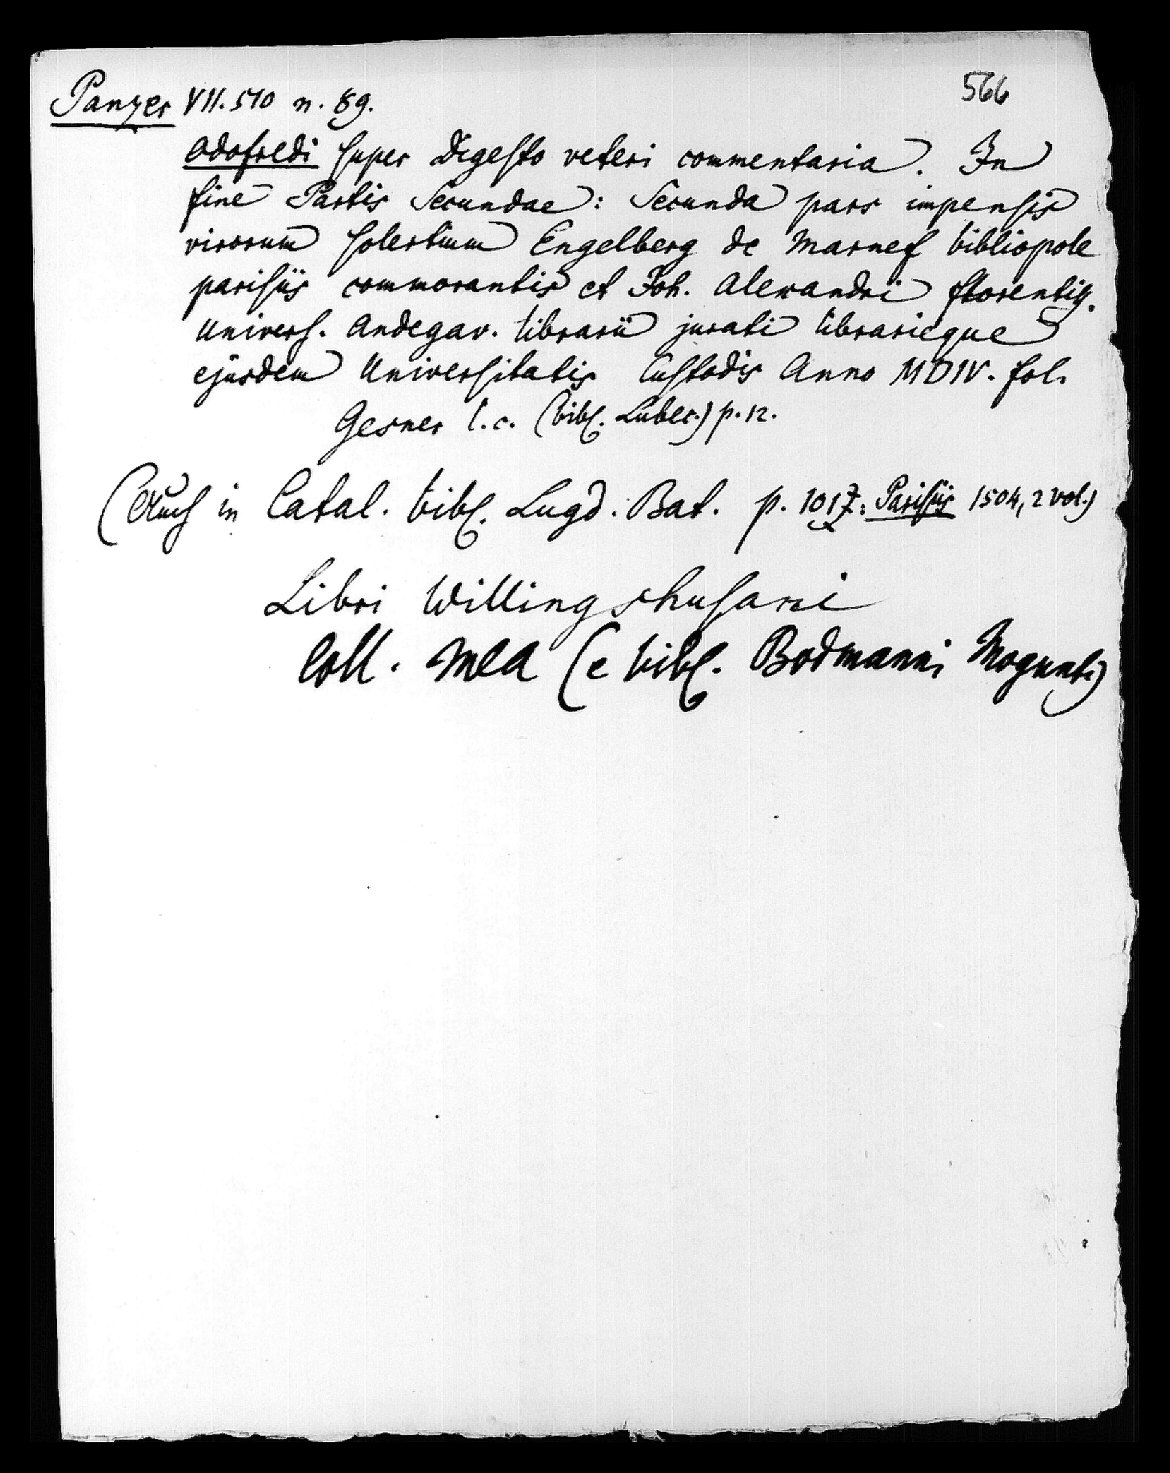 566
Panzer VII. 510 n. 89.
Odofredi super Digesto veteri commentaria. In
fine Partis Secundae: Secunda pars impensis
virorum solertium Engelberg de Marnef bibliopole
parisiis commorantis et Joh. Alexandri
Univers. Andegav. librarii jurati librarieque
ejusdem Universitatis Custodis Anno MDIV. fol.
Gesner l. c. (bibl. Lubec.) p. 12.
(Auch in Catal. bibl. Lugd. Bat. p. 1017: Parisiis 1504, 2 vol.)
Libri Willingshusani
Coll. mea (e bibl. Bodmanni Mogunt.)